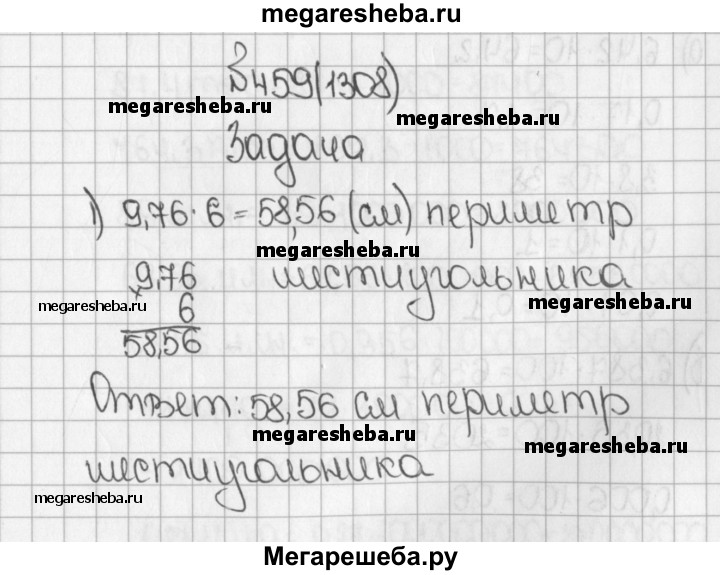 megaresheba.ru
№459(1308)
megaresheba.ru
megaresheba.ru
Задача
1) 9,76·6=58,56 (см) периметр
megaresheba.ru
9,76 шестиугольника
megaresheba.ru × 6 megaresheba.ru
58,56
Ответ: 58,56 см периметр
megaresheba.ru megaresheba.ru
шестиугольника
megaresheba.ru megaresheba.ru
Мегарешеба.ру